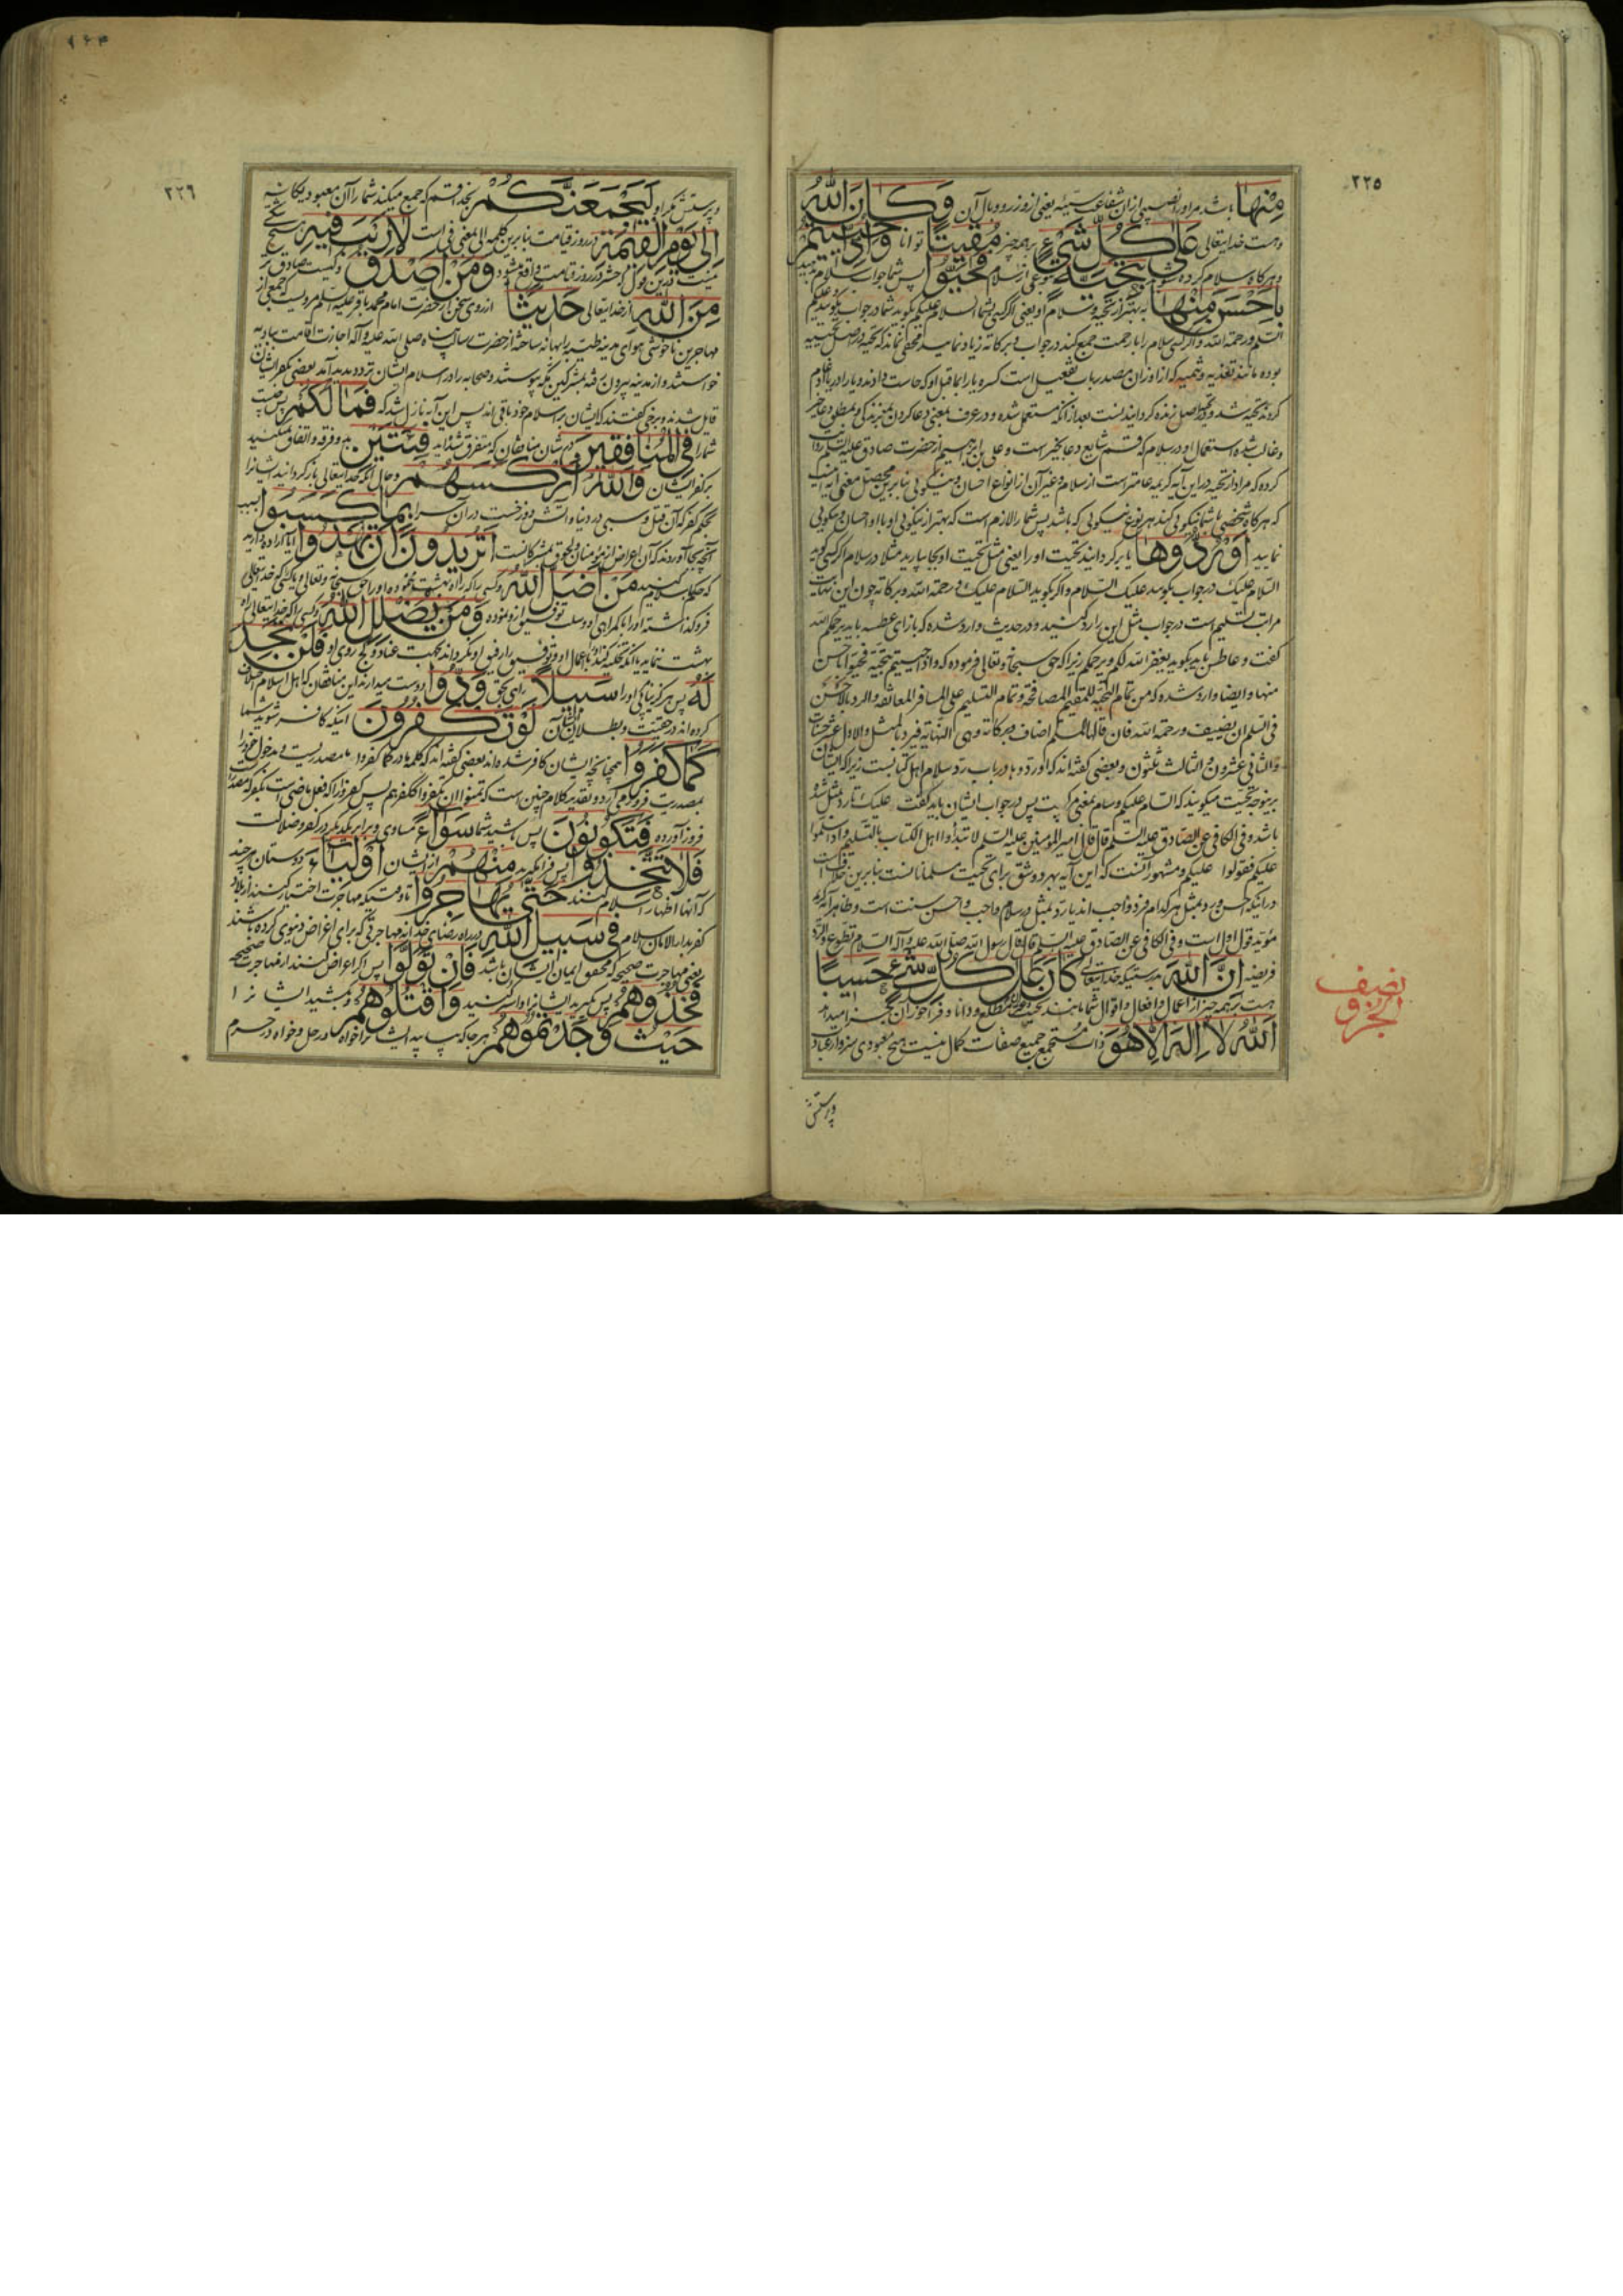 ٢٢٥
مِنْهَا باشد مر او را نصیبی از آن شفاعت سیئه یعنی از وزر و وبال آن وَكَانَ اللهُ
وهست خدایتعالی عَلَى كُلِّ شَيْءٍ بر همه چیز مُقِيتًا توانا وَإِذَا حُيِّيتُمْ
وهرگاه سلام کرده شوید بِتَحِيَّةٍ نوعی از سلام فَحَيُّوا پس شما جواب سلام
بِأَحْسَنَ مِنْهَا به بهتر از تحیه وسلام او یعنی اگر کسی بشما السلام علیکم بگوید شما در جواب بگویید علیکم
السلام ورحمة الله واگر کسی سلام را با رحمت جمع کند در جواب وبرکاته زیاد نمایید مخفی نماند که تحیه در اصل تحییه
بوده مانند تغذیه وتسمیه که از اوزان مصدر باب تفعیل است کسره یا را بما قبل او که حاست دادند ویا را در یا ادغام
کردند تحیه شد
وغالب شده استعمال او در سلام که قسم شایع دعا بخیر است وعلی بن ابراهیم از حضرت صادق علیه السلام روایت
کرده که مراد از تحیه در این آیه کریمه عامتر است از سلام وغیر آن از انواع احسان ونیکویی بنا برین محصل معنی آیه اینست
که هرگاه شخصی با شما نیکویی کند هر نوع نیکویی که باشد پس شما را لازم است که بهتر از نیکویی او با او احسان ونیکویی
نمایید أَوْ رُدُّوهَا یا برگردانید تحیت او را یعنی مثل تحیت او بجا بیارید مثلا در سلام اگر کسی گوید
السلام علیک در جواب بگویید علیک السلام واگر بگوید السلام علیک ورحمة الله وبرکاته چون این نهایت
مراتب تسلیم است در جواب مثل این را رد کنید ودر حدیث وارد شده که بازای عطسه باید یرحمکم الله
گفت وعاطس باید بگوید یغفر الله لکم ویرحمکم زیرا که حق سبحانه وتعالی فرموده که واذا حییتم بتحیة فحیوا باحسن
منها وایضا وارد شده که من تمام التحیة للمقیم المصافحة وتمام التسلیم علی المسافر المعانقة والرد بالاحسن
فی السلام ان یضیف ورحمة الله فان قالها المسلم اضاف وبرکاته وهی النهایة فیرد بالمثل والاول عشر حسنات
والثانی عشرون والثالث ثلثون وبعضی گفته اند که او ردوها در باب رد سلام اهل کتابست زیرا که ایشان
برینوجه تحیت میگویند که السام علیکم وسام بمعنی مرگیست پس در جواب ایشان باید گفت علیک تا رد بمثل شده
باشد وفی الکافی عن الصادق علیه السلم قال قال امیر المومنین علیه السلم لا تبدأوا اهل الکتاب بالتسلیم واذا سلموا
علیکم فقولوا علیکم ومشهور آنست که این آیه بهر دو شق برای تحیت مسلمانانست بنا برین خلاف است
در اینکه احسن ورد بمثل هر کدام فرد واجب اند یا رد بمثل در سلام واجب واحسن سنت است وظاهر آیه کریمه
مؤید قول اول است وفی الکافی عن الصادق علیه السلم قال قال رسول الله صلی الله علیه وآله السلام تطوع والرد
فریضه إِنَّ اللهَ بدرستیکه خدایتعالی كَانَ عَلَى كُلِّ شَيْءٍ حَسِيبًا
هست بر همه چیز از اعمال وافعال واقوال شما
اللهُ لَا إِلٰهَ إِلَّا هُوَ ذات مستجمع جمیع صفات کمال نیست هیچ معبودی سزاوار عبادت
نصف
الجزو
وپرستش
٢٢٦
وپرستش مگر او لَيَجْمَعَنَّكُمْ بخدا قسم که جمع میکند شما را آن معبود یگانه
إِلَى يَوْمِ الْقِيٰمَةِ در روز قیامت بنا برین کلمه الی بمعنی فی است لَا رَيْبَ فِيهِ هیچ شکی
نیست وَمَنْ أَصْدَقُ وکیست صادق تر
مِنَ اللهِ از خدایتعالی حَدِيثًا از روی سخن از حضرت امام محمد باقر علیه السلم مرویست که جمعی از
مهاجرین ناخوشی هوای مدینه طیبه را بهانه ساخته از حضرت رسالت پناه صلی الله علیه وآله اجازت اقامت بادیه
خواستند واز مدینه بیرون رفته بمشرکین مکه پیوستند وصحابه را در اسلام ایشان تردد پدید آمد بعضی بکفر ایشان
قایل شدند وبرخی گفتند که ایشان بر اسلام خود باقی اند پس این آیه نازل شد که فَمَا لَكُمْ پس چیست
شما را فِي الْمُنَافِقِينَ در شان منافقان که متفرق شده اید فِئَتَيْنِ بدو فرقه واتفاق نمیکنید
بر کفر ایشان وَاللهُ أَرْكَسَهُمْ وحال آنکه خدایتعالی باز گردانید ایشانرا
بحکم کفر که آن قتل وسبی در دنیا وآتش دوزخست در آن سرا بِمَا كَسَبُوا بسبب
آنچه بجا آوردند که آن اعراض از مؤمنان ولحوق بمشرکانست أَتُرِيدُونَ أَنْ تَهْدُوا آیا اراده دارید
که حکم باسلام کنید مَنْ أَضَلَّ اللهُ
فرو گذاشته او را بگمراهی او وسلب توفیق ازو نموده وَمَنْ يُضْلِلِ اللهُ وکسی را که خدایتعالی راه
بهشت ننماید فَلَنْ تَجِدَ
لَهُ پس هرگز نیابی او را سَبِيلًا راهی بحق وَدُّوا دوست میدارند این منافقان که اهل اسلام اختلاف
کرده اند در حقیت وبطلان ایشان لَوْ تَكْفُرُونَ اینکه کافر شوید شما
كَمَا كَفَرُوا همچنانچه ایشان کافر شده اند بعضی گفته اند که کلمه ما در کما کفروا ما مصدریست
فَتَكُونُونَ پس باشید شما سَوَاءً مساوی وبرابر یکدیگر در کفر وضلالت
فَلَا تَتَّخِذُوا پس فرا مگیرید مِنْهُمْ از ایشان أَوْلِيَاءَ دوستان هر چند
که آنها اظهار اسلام کنند حَتَّى يُهَاجِرُوا تا وقتیکه مهاجرت اختیار کنند از بلاد
کفر بدار الامان اسلام فِي سَبِيلِ اللهِ در راه رضای خدا نه مهاجرتی که برای اغراض دنیوی کرده باشند
یعنی مهاجرت صحیحه که محقق ایمان ایشان باشد فَإِنْ تَوَلَّوْا پس اگر اعراض کنند از مهاجرت صحیحه
فَخُذُوهُمْ پس بگیرید ایشانرا واسیر کنید وَاقْتُلُوهُمْ وبکشید ایشانرا
حَيْثُ وَجَدْتُمُوهُمْ هر جا که بیابید ایشانرا خواه در حل وخواه در حرم